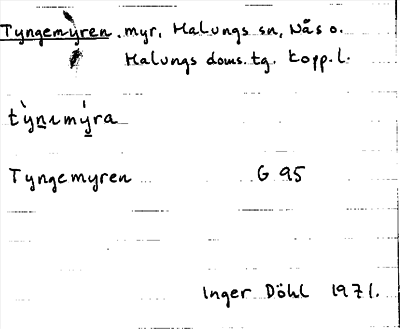 Tyngemyren. myr, Malungs sn, Nås o.
Malungs doms. tg. Kopp. l.
tỳnımýra
Tyngemyren G 95
Inger Döhl 1971.